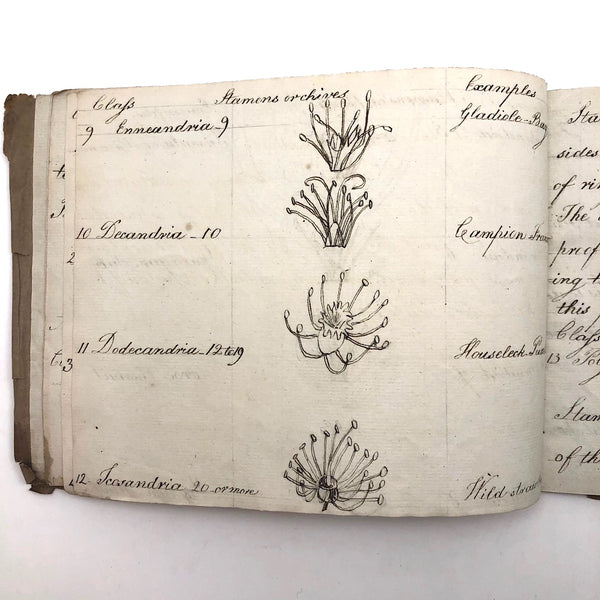 Class Stamens or chives Examples
9 Enneandria - 9 Gladiole - 
10 Decandria - 10 Campion
11 Dodecandria - 12 to 19 Houseleek
12 Icosandria 20 or more Wild
Sta
sides
of
The
proof
ing
this
Class
13
Stam
of th
2
3